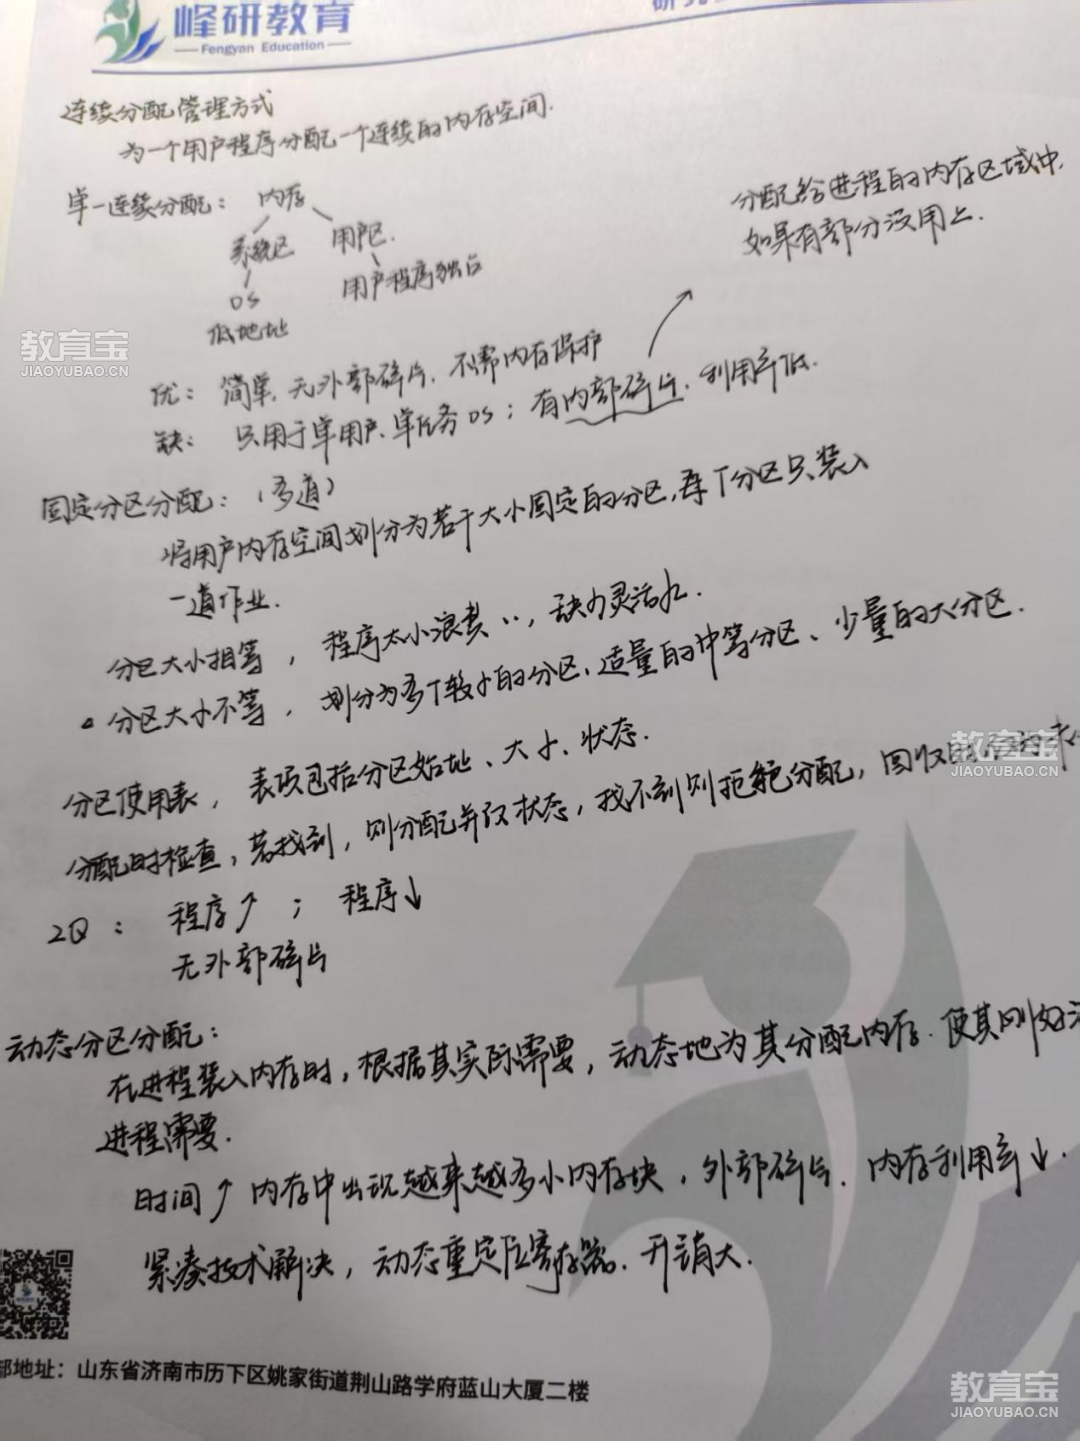 峰研教育
Fengyan Education
连续分配管理方式
为一个用户程序分配一个连续的内存空间.
单一连续分配: 内存
系统区 用户区.
OS 用户程序独占
低地址
分配给进程的内存区域中,
如果有部分没用上.
优: 简单, 无外部碎片, 不需内存保护
缺: 只用于单用户、单任务OS; 有内部碎片, 利用率低.
固定分区分配: (多道)
将用户内存空间划分为若干大小固定的分区, 每个分区只装入
一道作业.
分区大小相等, 程序太小浪费.., 缺乏灵活性.
分区大小不等, 划分为多个较小的分区, 适量的中等分区、少量的大分区.
分区使用表, 表项包括分区始址、大小、状态.
分配时检查, 若找到, 则分配并改状态, 找不到则拒绝分配, 回收时
2Q: 程序↑; 程序↓
无外部碎片
动态分区分配:
在进程装入内存时, 根据其实际需要, 动态地为其分配内存. 使其刚好
进程需要.
时间↑ 内存中出现越来越多小内存块, 外部碎片. 内存利用率↓.
紧凑技术解决, 动态重定位寄存器. 开销大.
部地址: 山东省济南市历下区姚家街道荆山路学府蓝山大厦二楼
教育宝
JIAOYUBAO.CN
教育宝
JIAOYUBAO.CN
教育宝
JIAOYUBAO.CN